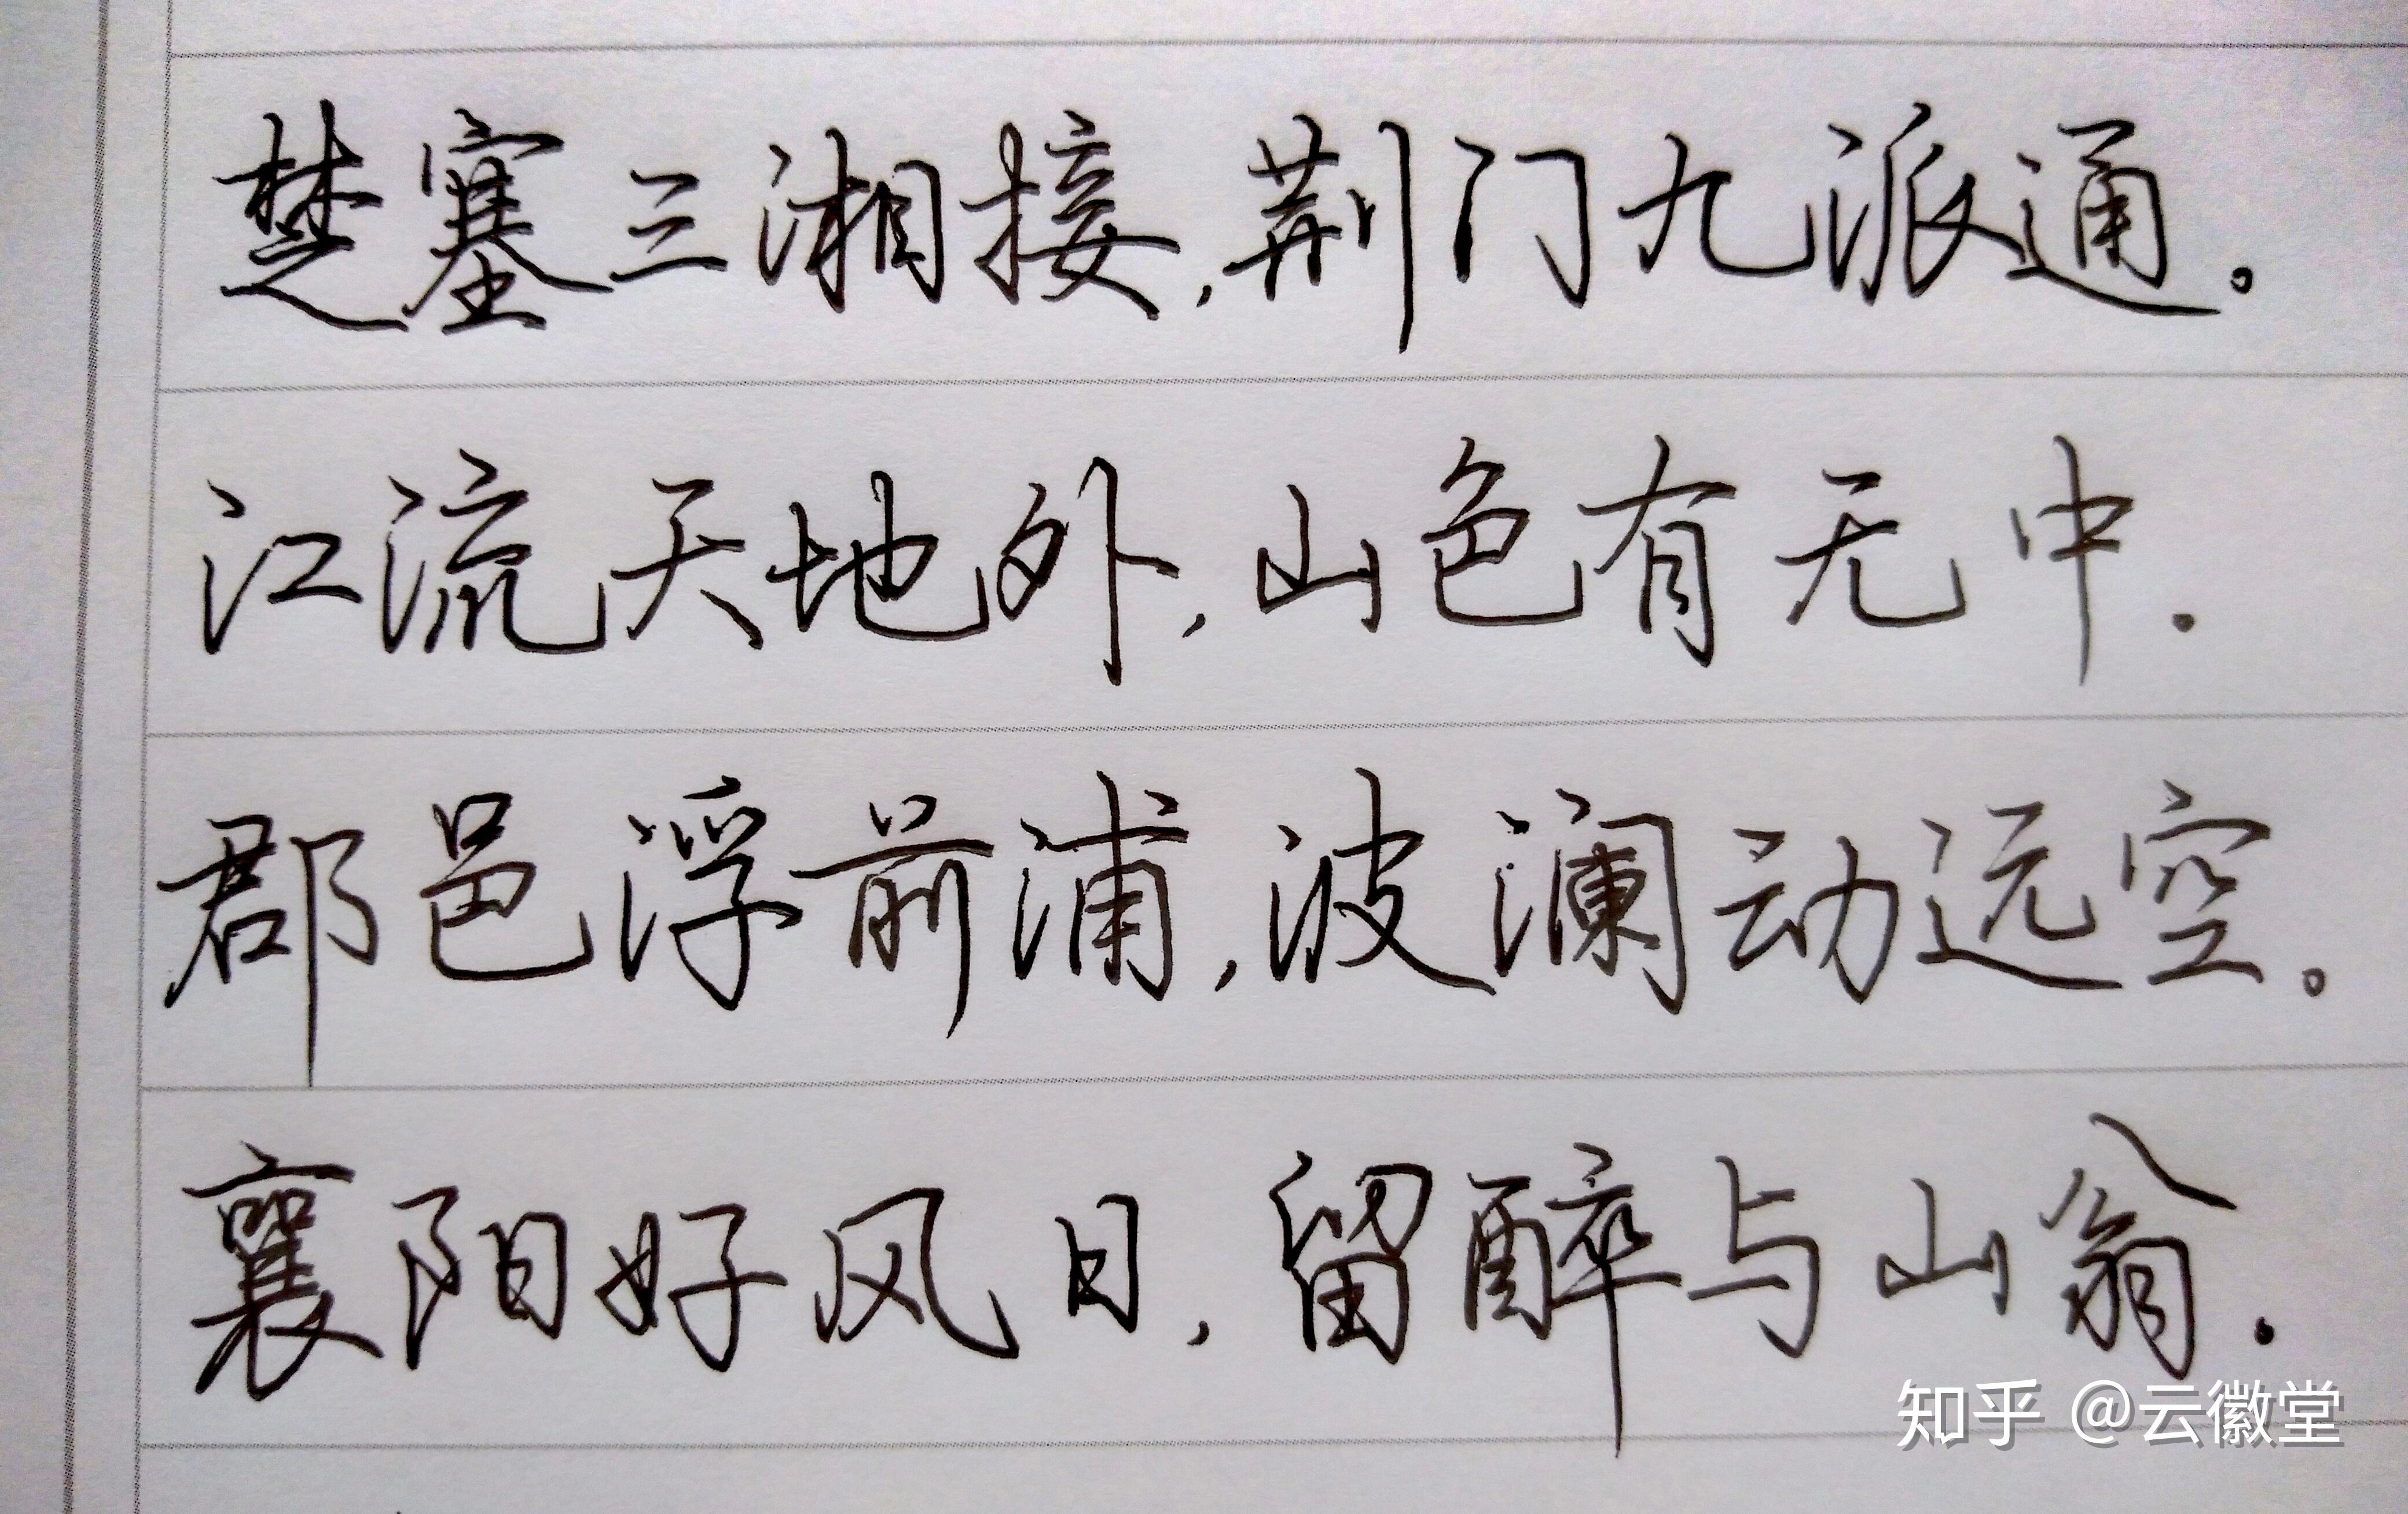 楚塞三湘接,荆门九派通。
江流天地外,山色有无中.
郡邑浮前浦,波澜动远空。
襄阳好风日,留醉与山翁.
知乎 @云徽堂